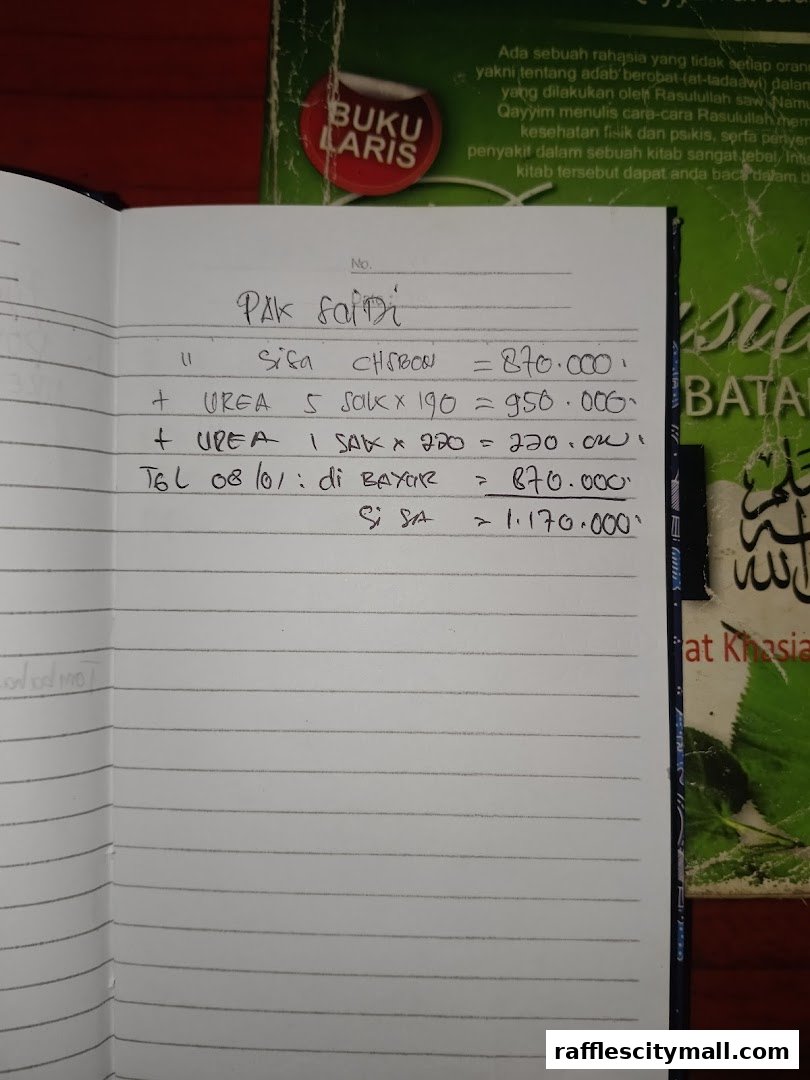 Ada sebuah rahasia yang tidak setiap oran
yakni tentang adab berobat (at-tadaawi) dalam
yang dilakukan oleh Rasulullah saw. Nam
Qayyim menulis cara-cara Rasulullah mem
kesehatan fisik dan psikis, serta penyem
penyakit dalam sebuah kitab sangat tebal. Inti
kitab tersebut dapat anda baca dalam b
BUKU
LARIS
No.
PAK SAIDI
" SiSa CHSBON = 870.000
+ UREA 5 SAK x 190 = 950.000
+ UREA 1 SAK x 220 = 220.000
TGL 08/01 : di BAYAR = 870.000
Si SA = 1.170.000
BATA
at Khasia
rafflescitymall.com